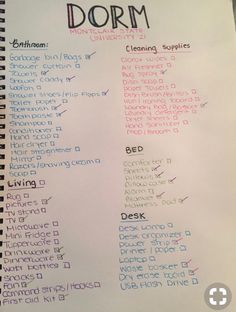 DORM
MONTCLAIR STATE
UNIVERSITY 21
Bathroom:
Garbage bin/Bags
Shower curtain
Towels
Shower Caddy
Loofah
Shower Shoes/Flip Flops
Toilet Paper
Toothbrush
Tooth paste
Shampoo
Conditioner
Hand Soap
Hair dryer
Hair Straightener
Mirror
Razors/Shaving cream
Soap
Living
Rug
Pictures
TV stand
TV
Microwave
Mini Fridge
Tupperware
Drinkware
Dinnerware
Water bottles
Snacks
Fan
Command Strips/Hooks
First aid Kit
Cleaning Supplies
Clorox wipes
Air Freshener
Bug Spray
Dish Soap
Paper towels
Dish Brush
Iron
Laundry Bag
Laundry detergent
Dryer sheets
Hand Sanitizer
Mop/Broom
BED
Comforter
Sheets
Pillows
Pillow case
Alarm
Blanket
Mattress Pad
DESK
Desk Lamp
Desk organizer
Power Strip
Printer/paper
Laptop
Waste basket
Dry erase board
USB Flash Drive